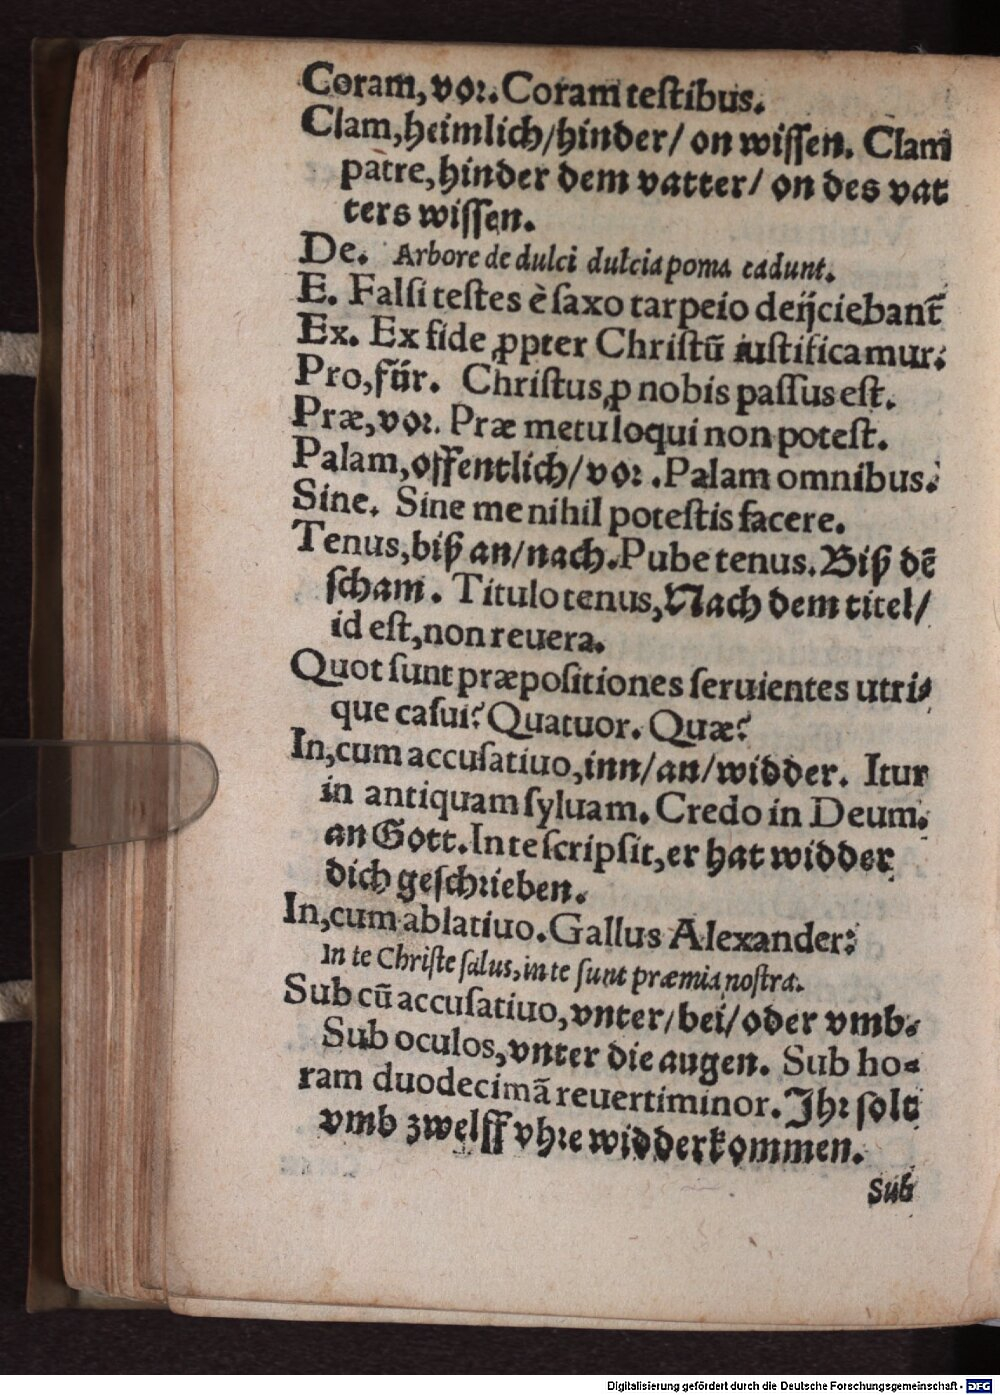 Coram, voꝛ. Coram teſtibus.
Clam, heimlich/hinder/ on wiſſen. Clam
patre, hinder dem vatter/ on des vat
ters wiſſen.
De. Arbore de dulci dulcia poma cadunt.
E. Falſi teſtes è ſaxo tarpeio deijciebant̃
Ex. Ex fide ꝓpter Chriſtũ iuſtificamur.
Pro, für. Chriſtus ꝓ nobis paſſus eſt.
Præ, voꝛ. Præ metu loqui non poteſt.
Palam, offentlich/ voꝛ. Palam omnibus.
Sine. Sine me nihil poteſtis facere.
Tenus, biß an/nach. Pube tenus. Biß dē
ſcham. Titulo tenus, Nach dem titel/
id eſt, non reuera.
Quot ſunt præpoſitiones ſeruientes utri⸗
que caſui? Quatuor. Quæ?
In, cum accuſatiuo, inn/an/widder. Itur
in antiquam ſyluam. Credo in Deum.
an Gott. In te ſcripſit, er hat widder
dich geſchꝛieben.
In, cum ablatiuo. Gallus Alexander:
In te Chriſte ſalus, in te ſunt præmia noſtra.
Sub cũ accuſatiuo, vnter/bei/oder vmb.
Sub oculos, vnter die augen. Sub ho⸗
ram duodecimã reuertiminor. Ihꝛ ſolt
vmb zwelff vhꝛe widderkommen.
Sub
Digitalisierung gefördert durch die Deutsche Forschungsgemeinschaft - DFG